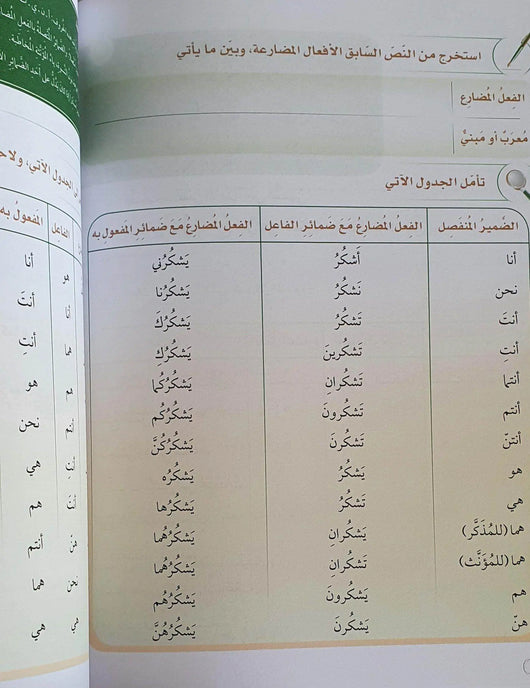 استخرج من النَصّ السَابق الأفعال المضارعة، وبيّن ما يأتي
الفِعلُ المُضارِع
مُعرَبٌ أو مَبنيٌّ
تأمّل الجدول الآتي
الضَميرُ المُنفَصِل	الفِعلُ المُضارعُ مَعَ ضمائرِ الفاعِل	الفِعلُ المُضارعُ مَعَ ضَمائرِ المَفعول به
أنا	أَشكُرُ	يَشكُرُني
نحن	نَشكُرُ	يَشكُرُنا
أنتَ	تَشكُرُ	يَشكُرُكَ
أنتِ	تَشكُرينَ	يَشكُرُكِ
أنتما	تَشكُرانِ	يَشكُرُكُما
أنتم	تَشكُرونَ	يَشكُرُكُم
أنتنّ	تَشكُرنَ	يَشكُرُكُنَّ
هو	يَشكُرُ	يَشكُرُه
هي	تَشكُرُ	يَشكُرُها
هما (للمُذَكَّر)	يَشكُرانِ	يَشكُرُهُما
هما (للمُؤَنَّث)	تَشكُرانِ	يَشكُرُهُما
هم	يَشكُرونَ	يَشكُرُهُم
هنّ	يَشكُرنَ	يَشكُرُهُنَّ
الجدول الآتي، ولاحـ
الفاعل	المفعول به
هو	أنا
أنا	أنتَ
هما	أنتِ
هم	هو
أنتم	نحن
أنتِ	هي
أنتَ	هم
هنّ	أنتم
نحن	هما
هي	هي